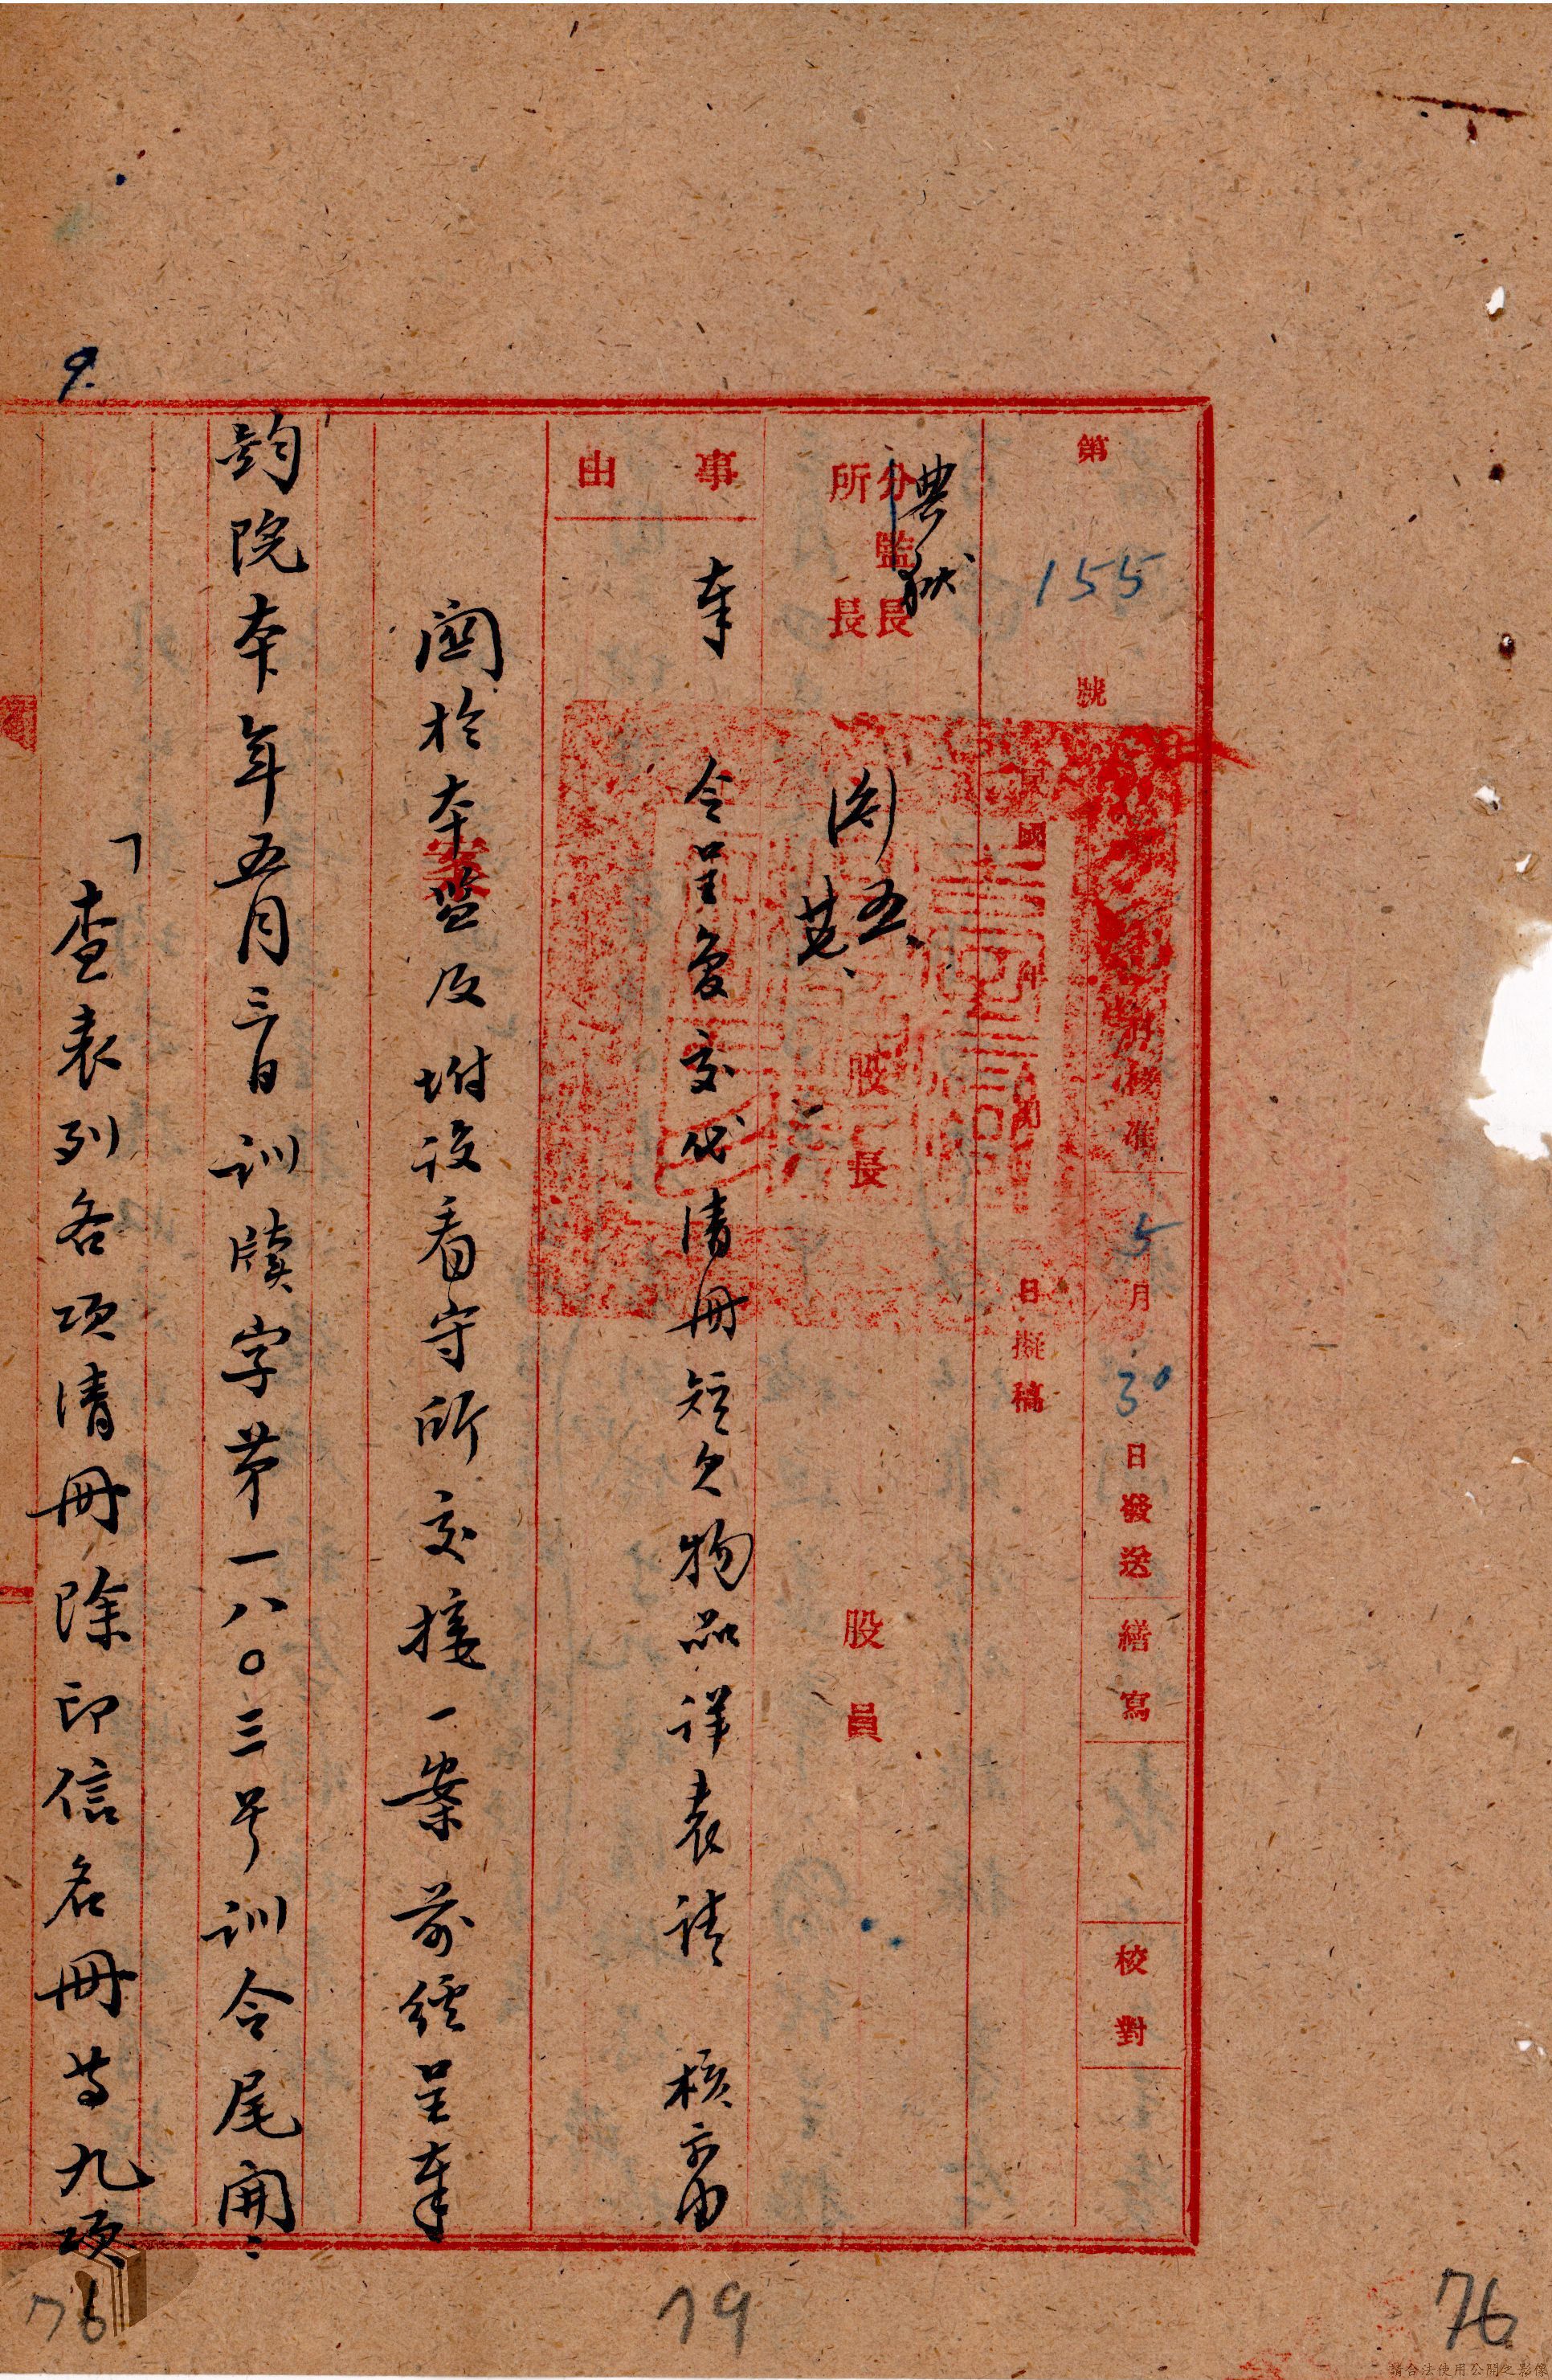 第 155 號
月 核准 5 月 30 日發送 繕寫 校對
民國 年 月 日擬稿
分監長
典獄
所長
閱 五、
股長 股員
事由
奉 令呈復交代清冊短欠物品詳表請 核備由
關於本監及附設看守所交接一案前經呈奉
鈞院本年五月三日訓牘字第一八〇三号訓令尾開：
「查表列各項清冊除印信名冊等九項
9.
76
79
76
請合法使用公開之影像